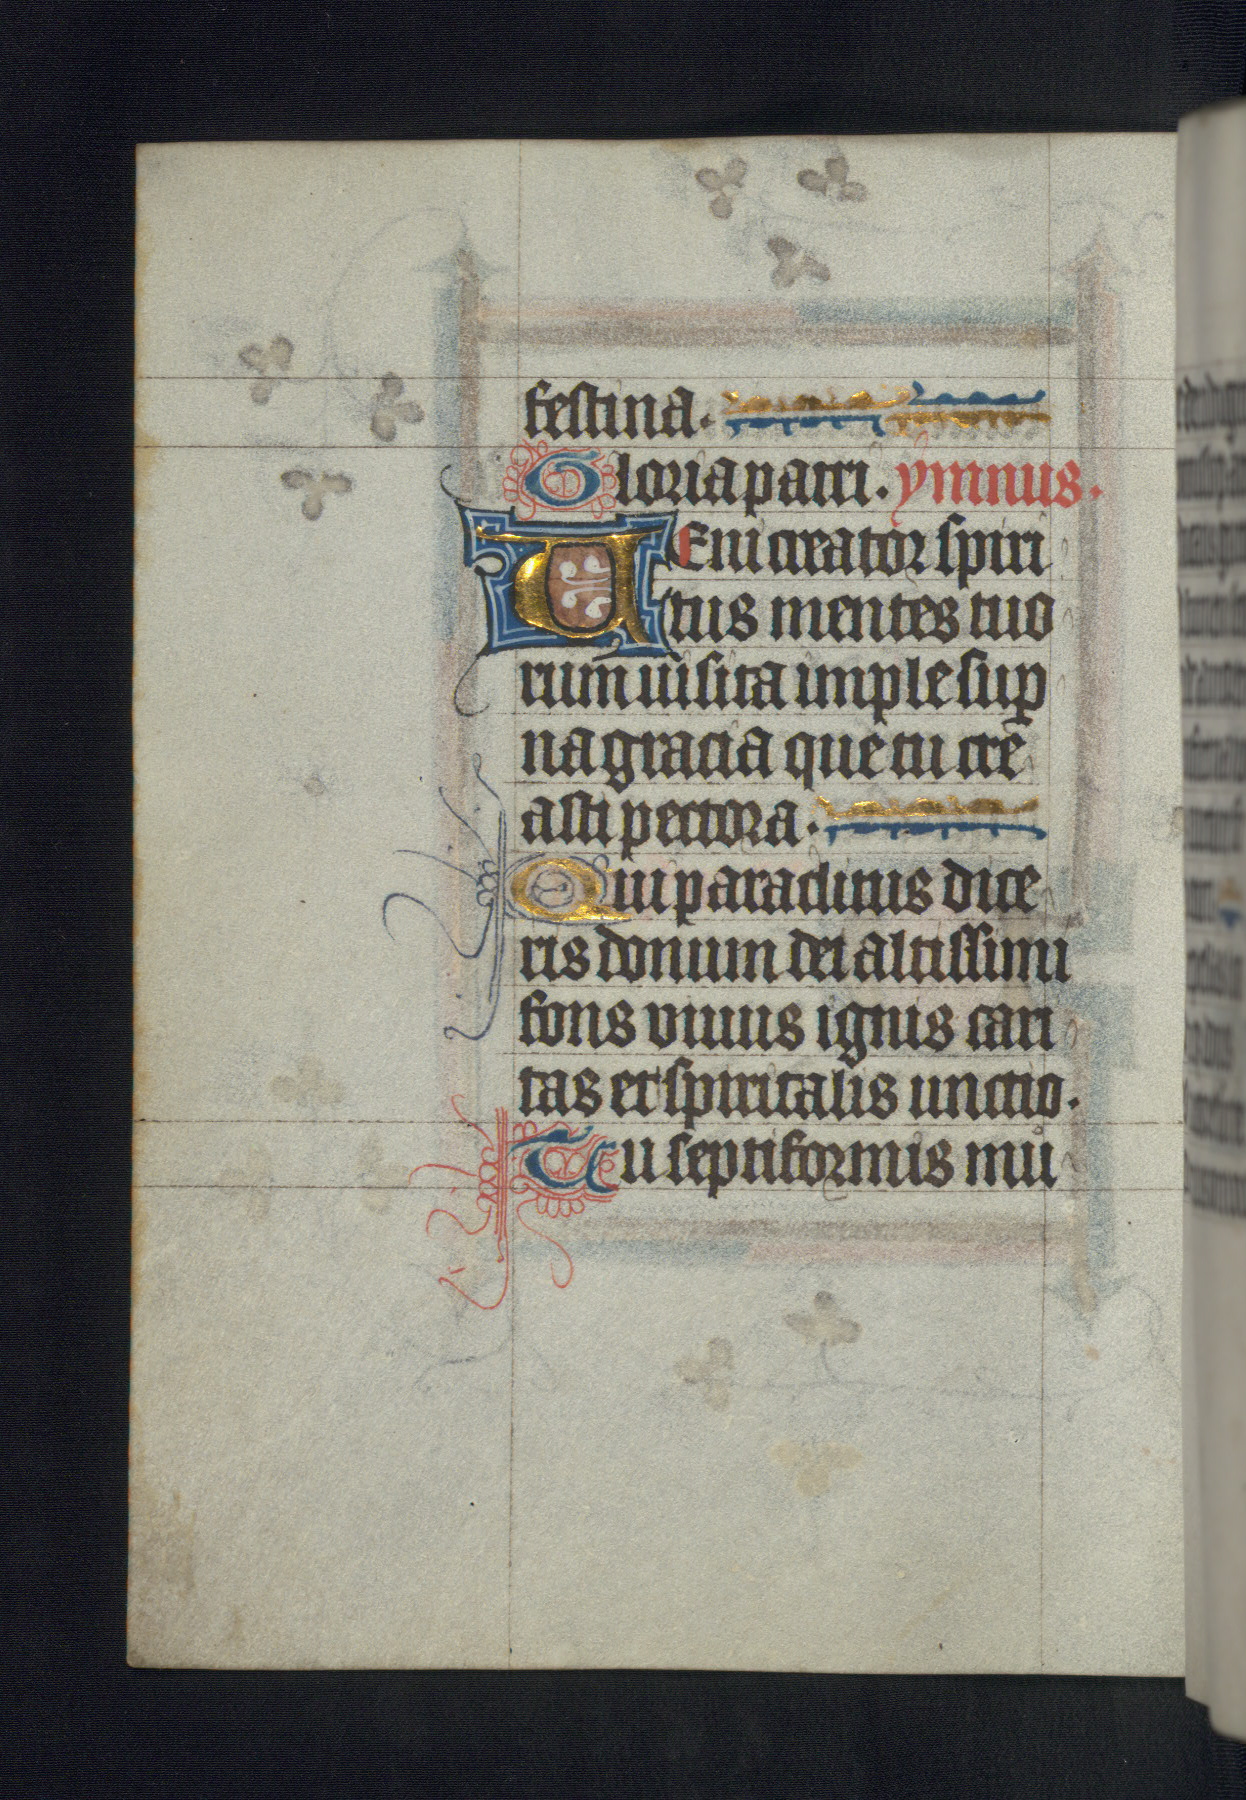 festina.
Gloria patri. ymnus.
UEni creator spiri
tus mentes tuo
rum uisita imple sup̱
na gracia que tu cre
asti pectora.
Qui paraclitus dice
ris donum dei altissimi
fons viuus ignis cari
tas et spiritalis unctio.
Tu septiformis mu